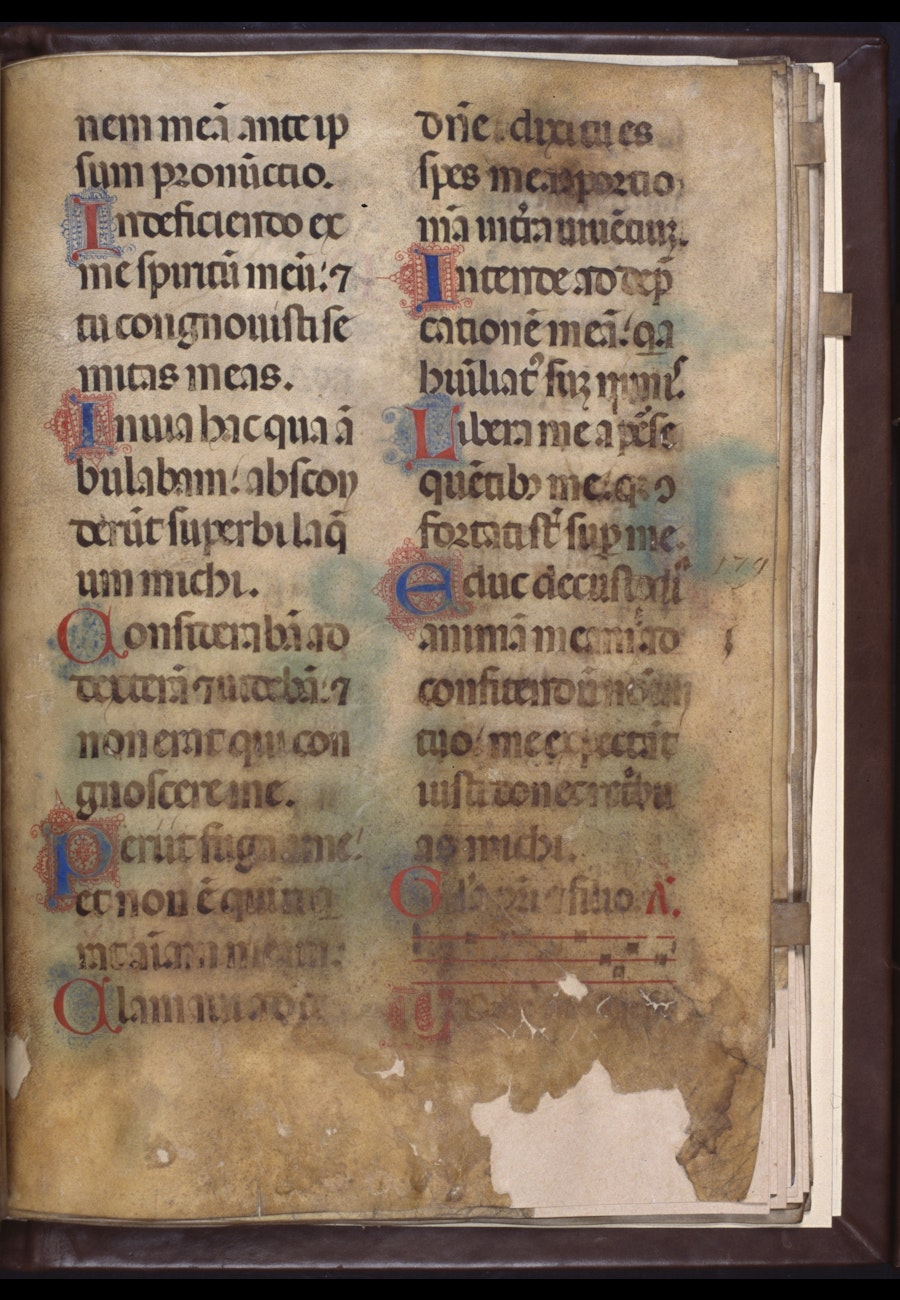 nem meā ante ip
sum pronūctio.
Indeficiendo ex
me spiritū meū: ⁊
tu congnouisti se
mitas meas.
In uia hac qua ā
bulabam: abscon
derūt superbi laq̄
um michi.
Considerabā ad
dexterā ⁊ uidebā: ⁊
non erat qui con
gnosceret me.
Periit fuga a me:
et non ē qui
aīam meam:
Clamaui ad te
dn̄e. dixi tu es
spes mea portio
mā in tr̄a uiuētiuꝫ.
Intende ad dep̄
cationē meā: q̄a
huīliatꝰ suꝫ nimis.
Libera me a p̄se
quētibꝰ me: qꝫ ꝯ
fortati st̄ sup̄ me.
Educ de custodi
animā meam: ad
confitendū nōīni
tuo: me expectāt
iusti donec retribu
as michi.
Gl'a pr̄i ⁊ filio. A.
179